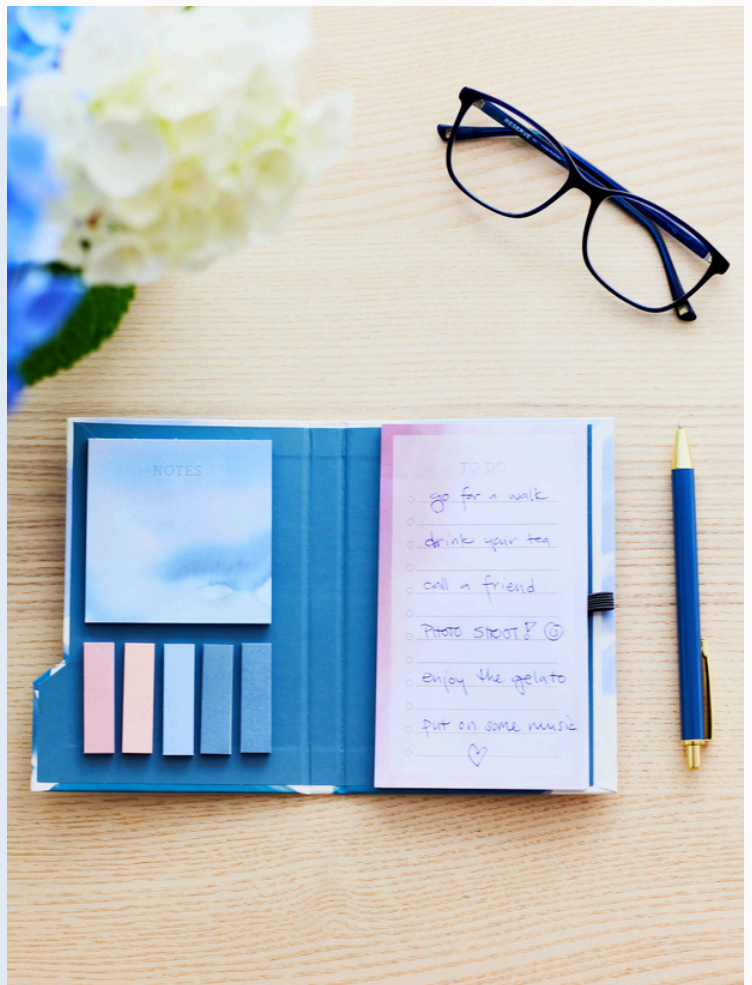 RESERVE
NOTES
TO DO
go for a walk
drink your tea
call a friend
PHOTO SHOOT!
enjoy the gelato
put on some music